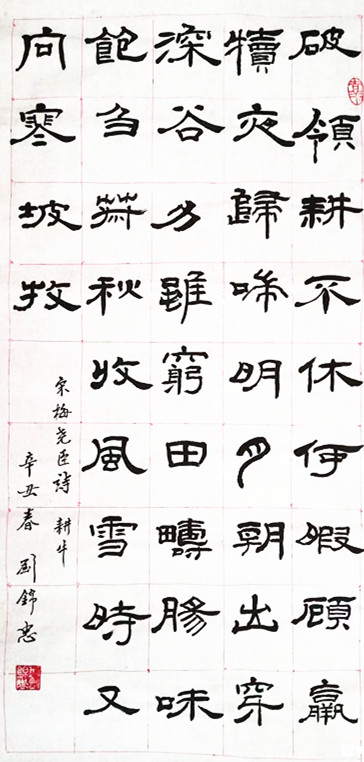 破領耕不休伊暇顧羸
犢夜歸喘明月朝出穿
深谷力雖窮田疇腸味
飽芻菽秋收風雪時又
向寒坡牧
宋梅尧臣詩 耕牛
辛丑春 劉錦惠